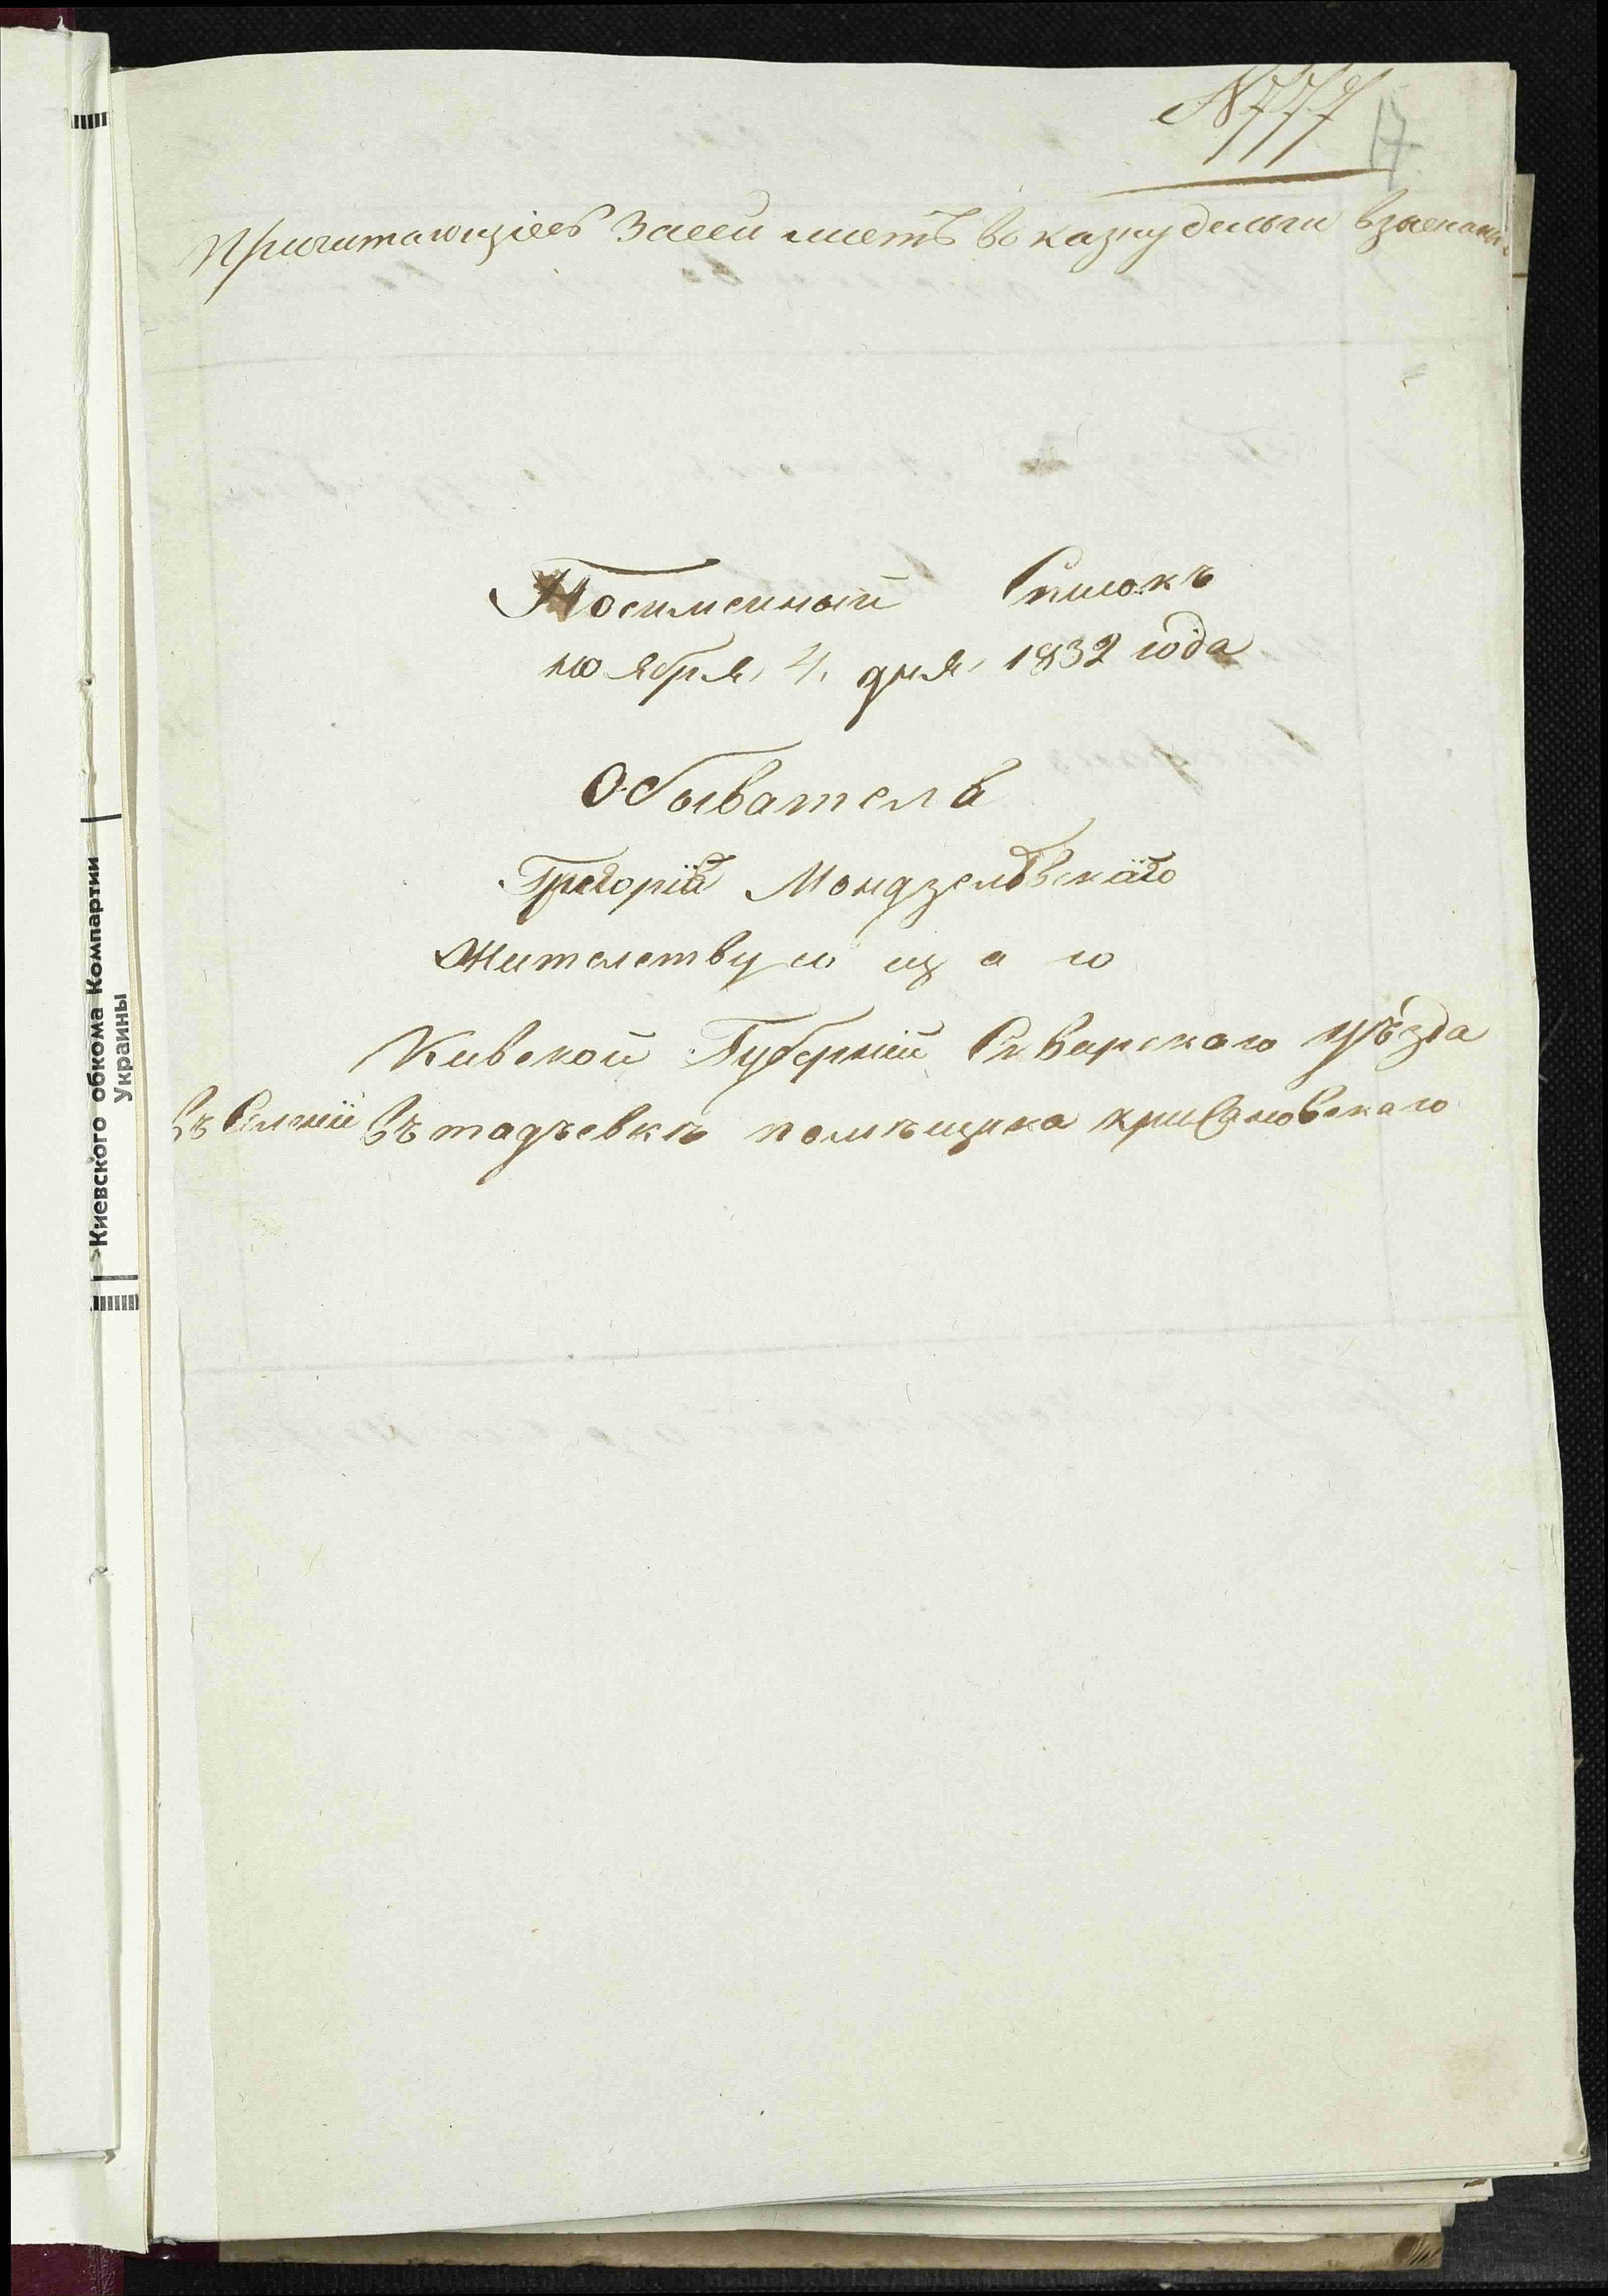 N777
17
Причитающіесѣ За сей листъ во казну деньги взысканы
Поеименный Списокъ
ноября, 4, дня, 1832 года
Обывателѣ
Григорія Мондзелѣвскаго
Жителствующаго
Кивской Губерніи Сквирского уѣзда
въ Селеніи въ тадѣевкѣ помѣщика Крижановскаго
Киевского обкома Компартии
Украины